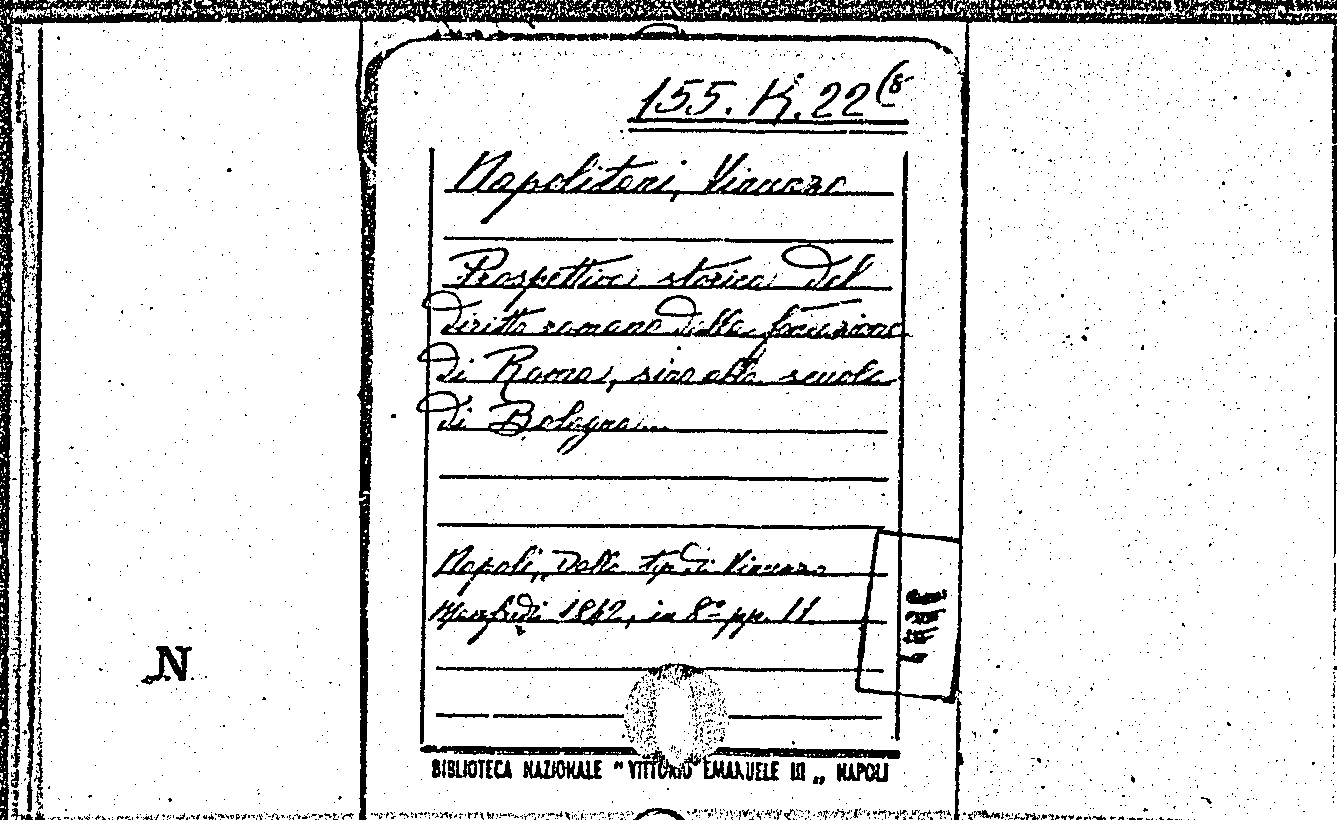 155. K. 22 (8
Napolitani, Vincenzo
Prospettiva storica del
diritto romano dalla fondazione
di Roma, sino alla scuola
di Bologna...
Napoli, Dalla tip. di Vincenzo
Manfredi 1842, in 8° pp. 11
N
BIBLIOTECA NAZIONALE " VITTORIO EMANUELE III „ NAPOLI